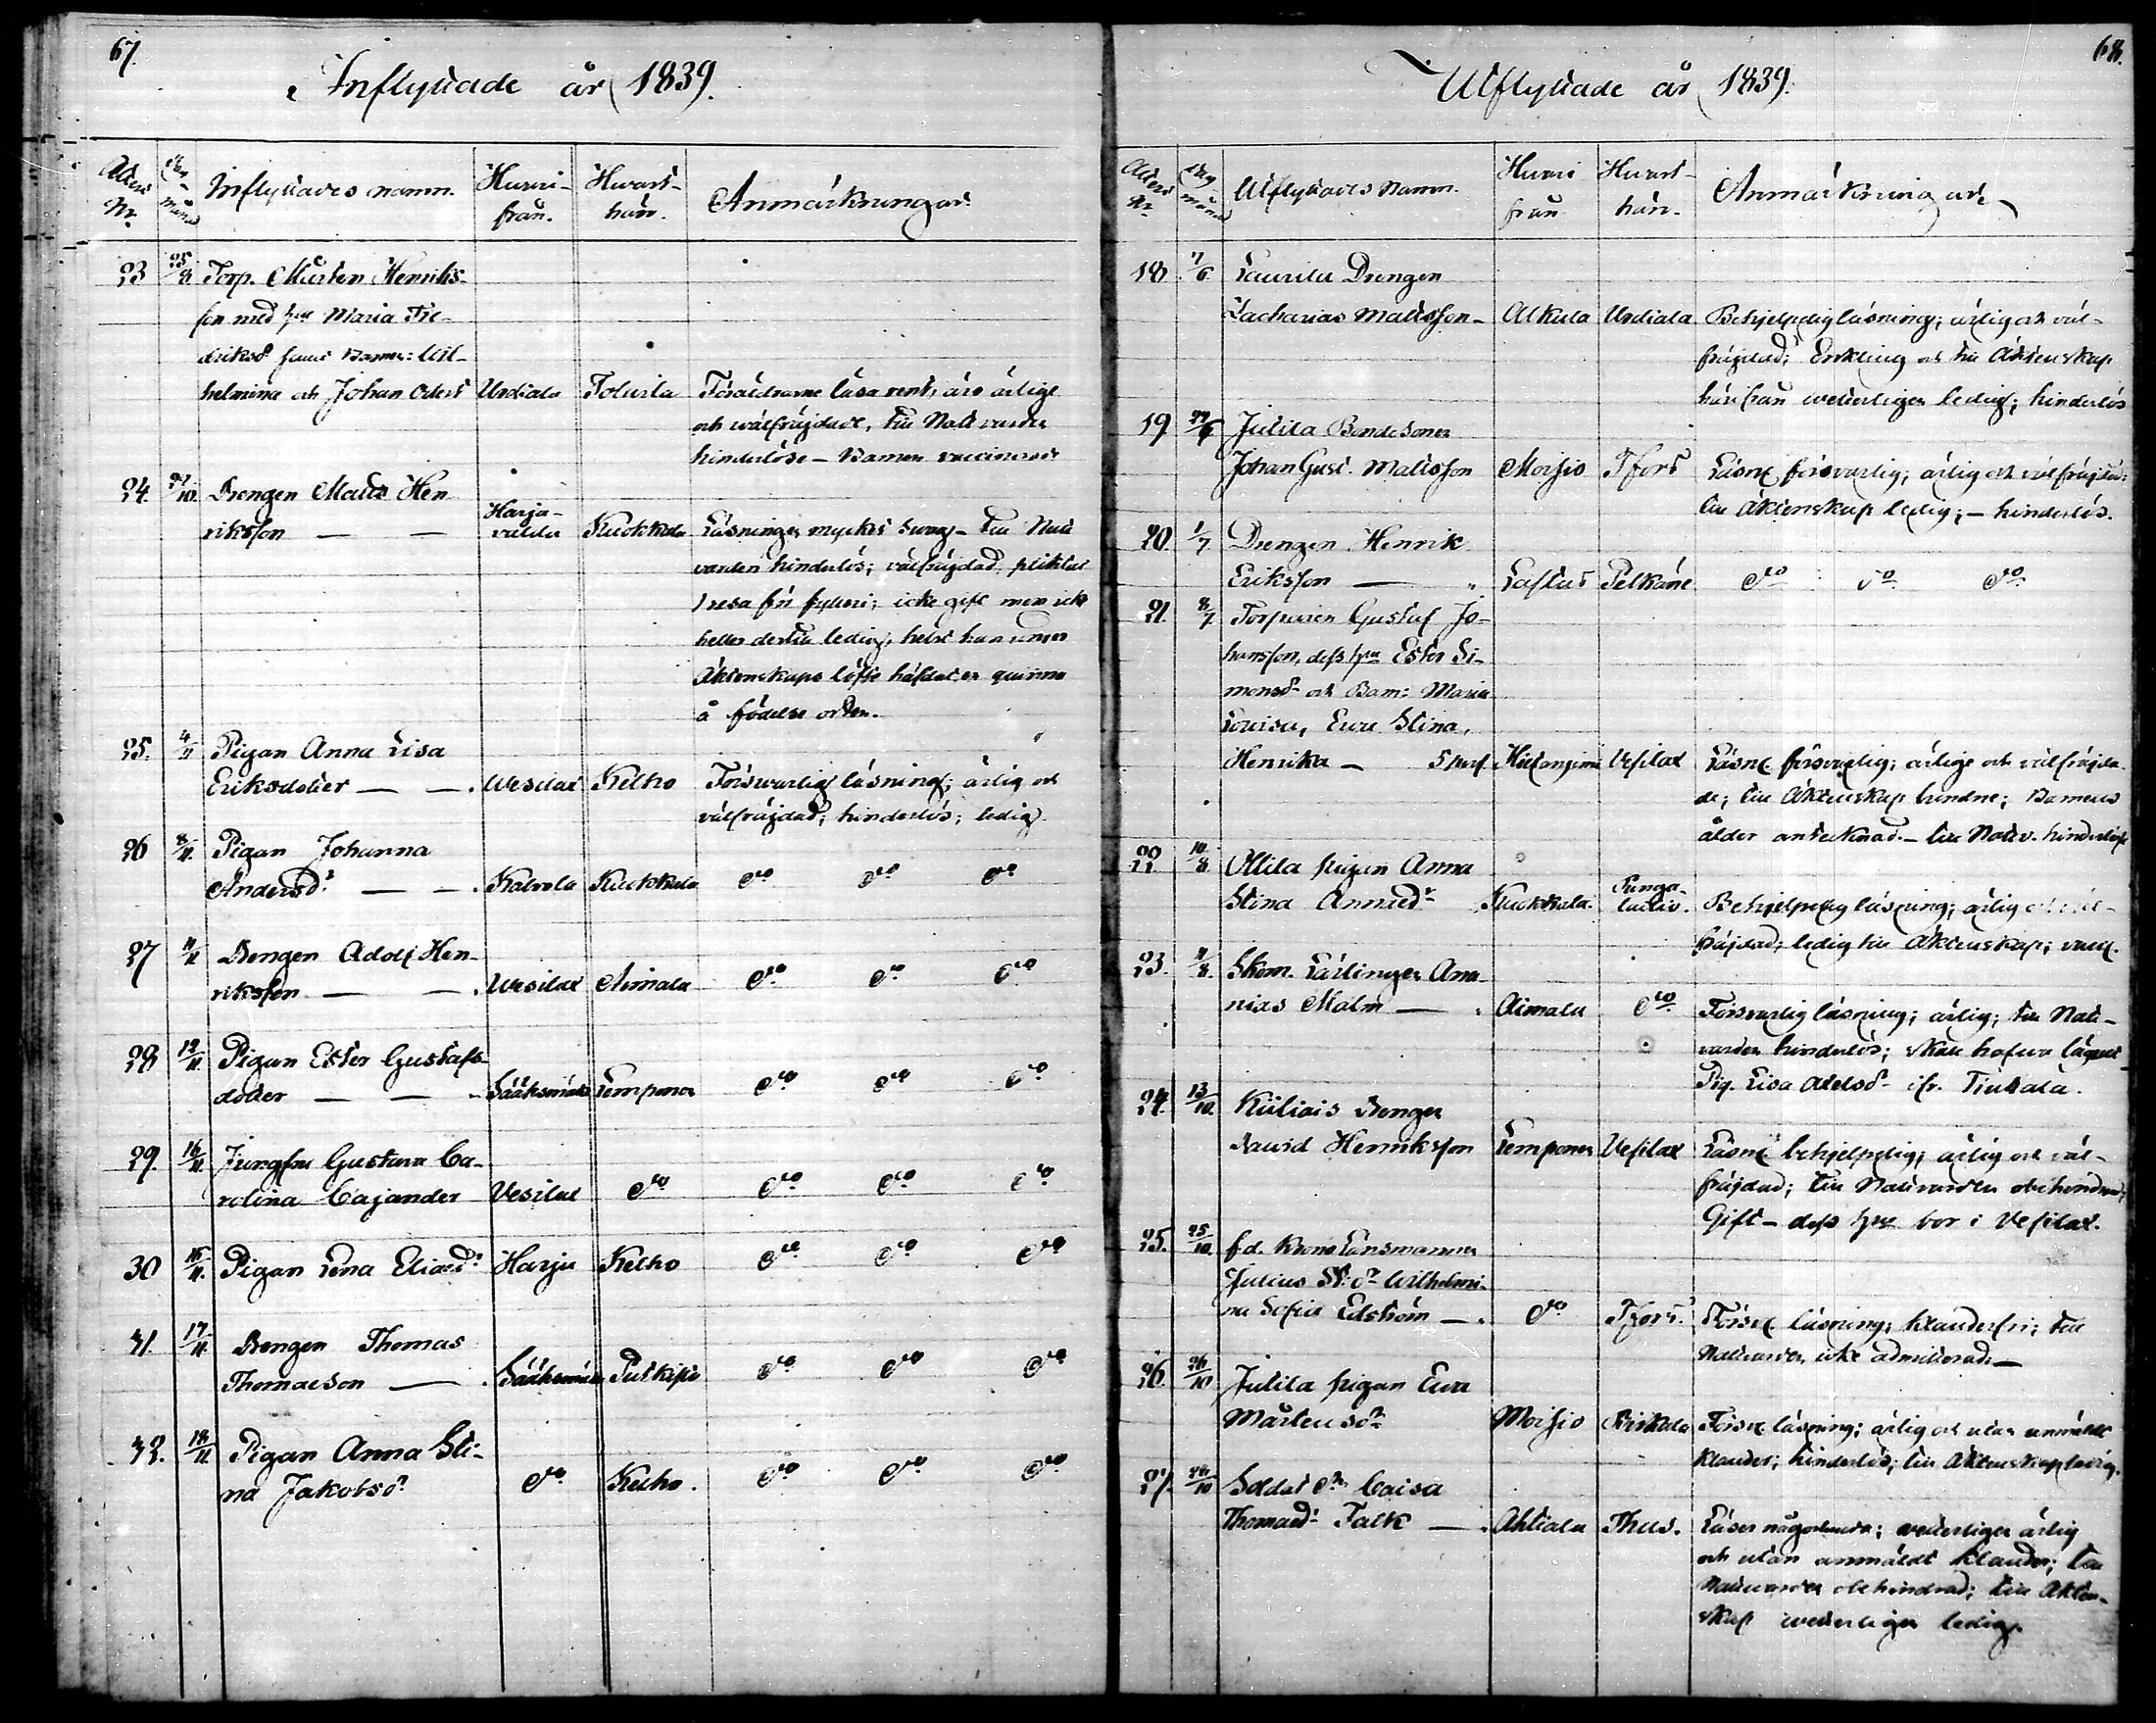 67.
Inflyttade år 1839.
Attest Nr.
Dag månad
Inflyttades namn.
Hvari-
från.
Hvart-
hän.
Anmärkningar
23 25/8 Torp. Mårten Henriks-
son med hu Maria Fre-
driksdr samt Barnen: Wil-
helmina och Johan Urdiala Tolvila Föräldrarne läsa rent, äro ärlige
och wälfräjdade, till Nattvarden
hinderlöse - Barnen vaccinerade
24 10. Drengen Matts Hen
riksson — — Harja-
valda Kuokkala Läsningen mycket swag - till Natt
varden hinderlös; välfräjdad, pliktat
1 resa för fylleri; icke gift men icke
heller dertill ledig, helst han under
Äktenskaps löfte häfdat en quinna
å födelse orten.
25. 4/11 Pigan Anna Lisa
Eriksdotter — — Wesilax Kelho Förswarlig läsning; ärlig och
välfräjdad; hinderlös; ledig
26 8/11. Pigan Johanna
Andersdr — — Kalvola Kuokkala do do do
27 11/11 Drengen Adolf Hen-
riksson — — Wesilax Aimala do do do
28 12/11. Pigan Ester Gustafs-
dotter — — Sääksmäki Lempoinen do do do
29. 16/11. Jungfru Gustava Ca-
rolina Cajander Vesilax do do do do
30 16/11. Pigan Lena Eliaedr Harju Kelho do do do
31. 17/11. Drengen Thomas
Thomasson — Sääksmäki do do do
32. 18/11. Pigan Anna Sti-
na Jakobsdr do Kelho. do do do
68.
Utflyttade år 1839.
Attest Nr.
Dag månad
Utflyttades Namn.
Hvari
från
Hvart-
hän.
Anmärkningar
18 7/6. Laurila Drengen
Zacharias Mattsson - Alkula Urdiala Behjelpelig läsning; ärlig och väl-
fräjdad; Enkling och till Äktenskap
härifrån wetterligen ledig; hinderlös
19 Jutila Bondesonen
Johan Gust. Mattsson Moisio Tfors Läsn försvarlig; ärlig och välfräjdad;
till Äktenskap ledig; - hinderlös.
20. 1/7 Drengen Henrik
Eriksson — Pelkäne do do do
21. 8/7 Torparen Gustaf Jo-
hansson, dess hu Ester Si-
monsdr och Barn: Maria
Lovisa, Eva Stina,
Henrika — 5 Vesilax Läsn försvarlig; ärlige och välfräjda-
de; till Äktenskap bundne; Barnens
ålder antecknad. - till Nattv. hinderlöse
22. 10/8 Ollila pigan Anna
Stina Kuokkala. Punga-
laitio. Behjelpelig läsning; ärlig och väl-
fräjdad; ledig till Äktenskap;
23. 11/8. Skom. Lärlingen Ana-
nias Malm — Aimala do Försvarlig läsning; ärlig; till Natt-
varden hinderlös; skall hafva lägrat
Pig. Lisa Axelsdr ifr. Tiukala.
24. 13/10. Kiiliais Drengen
David Henriksson Lempoinen Vesilax Läsn behjelpelig; ärlig och väl-
fräjdad; till Nattvarden obehindrad;
Gift - dess hu bor i Vesilax.
25. 25/10. f.d. Krono Länsmannen
Julius Wilhelmi-
na Sofia Edström — do Tfors. Försv läsning; klanderfri; till
Nattvarden icke admitterad —
26. 26/10 Jutila pigan Eva
Mårtensdr Moisio Birkala Försv läsning; ärlig och utan anmäldt
klander; hinderlös; till Äktenskap ledig.
27. 10 Soldat Caisa
Thomasdr Falk — Ahtiala Thus. Läser någorlunda; wetterligen ärlig
och utan anmäldt klander; till
Nattvarden obehindrad; till Äkten-
skap wetterligen ledig.